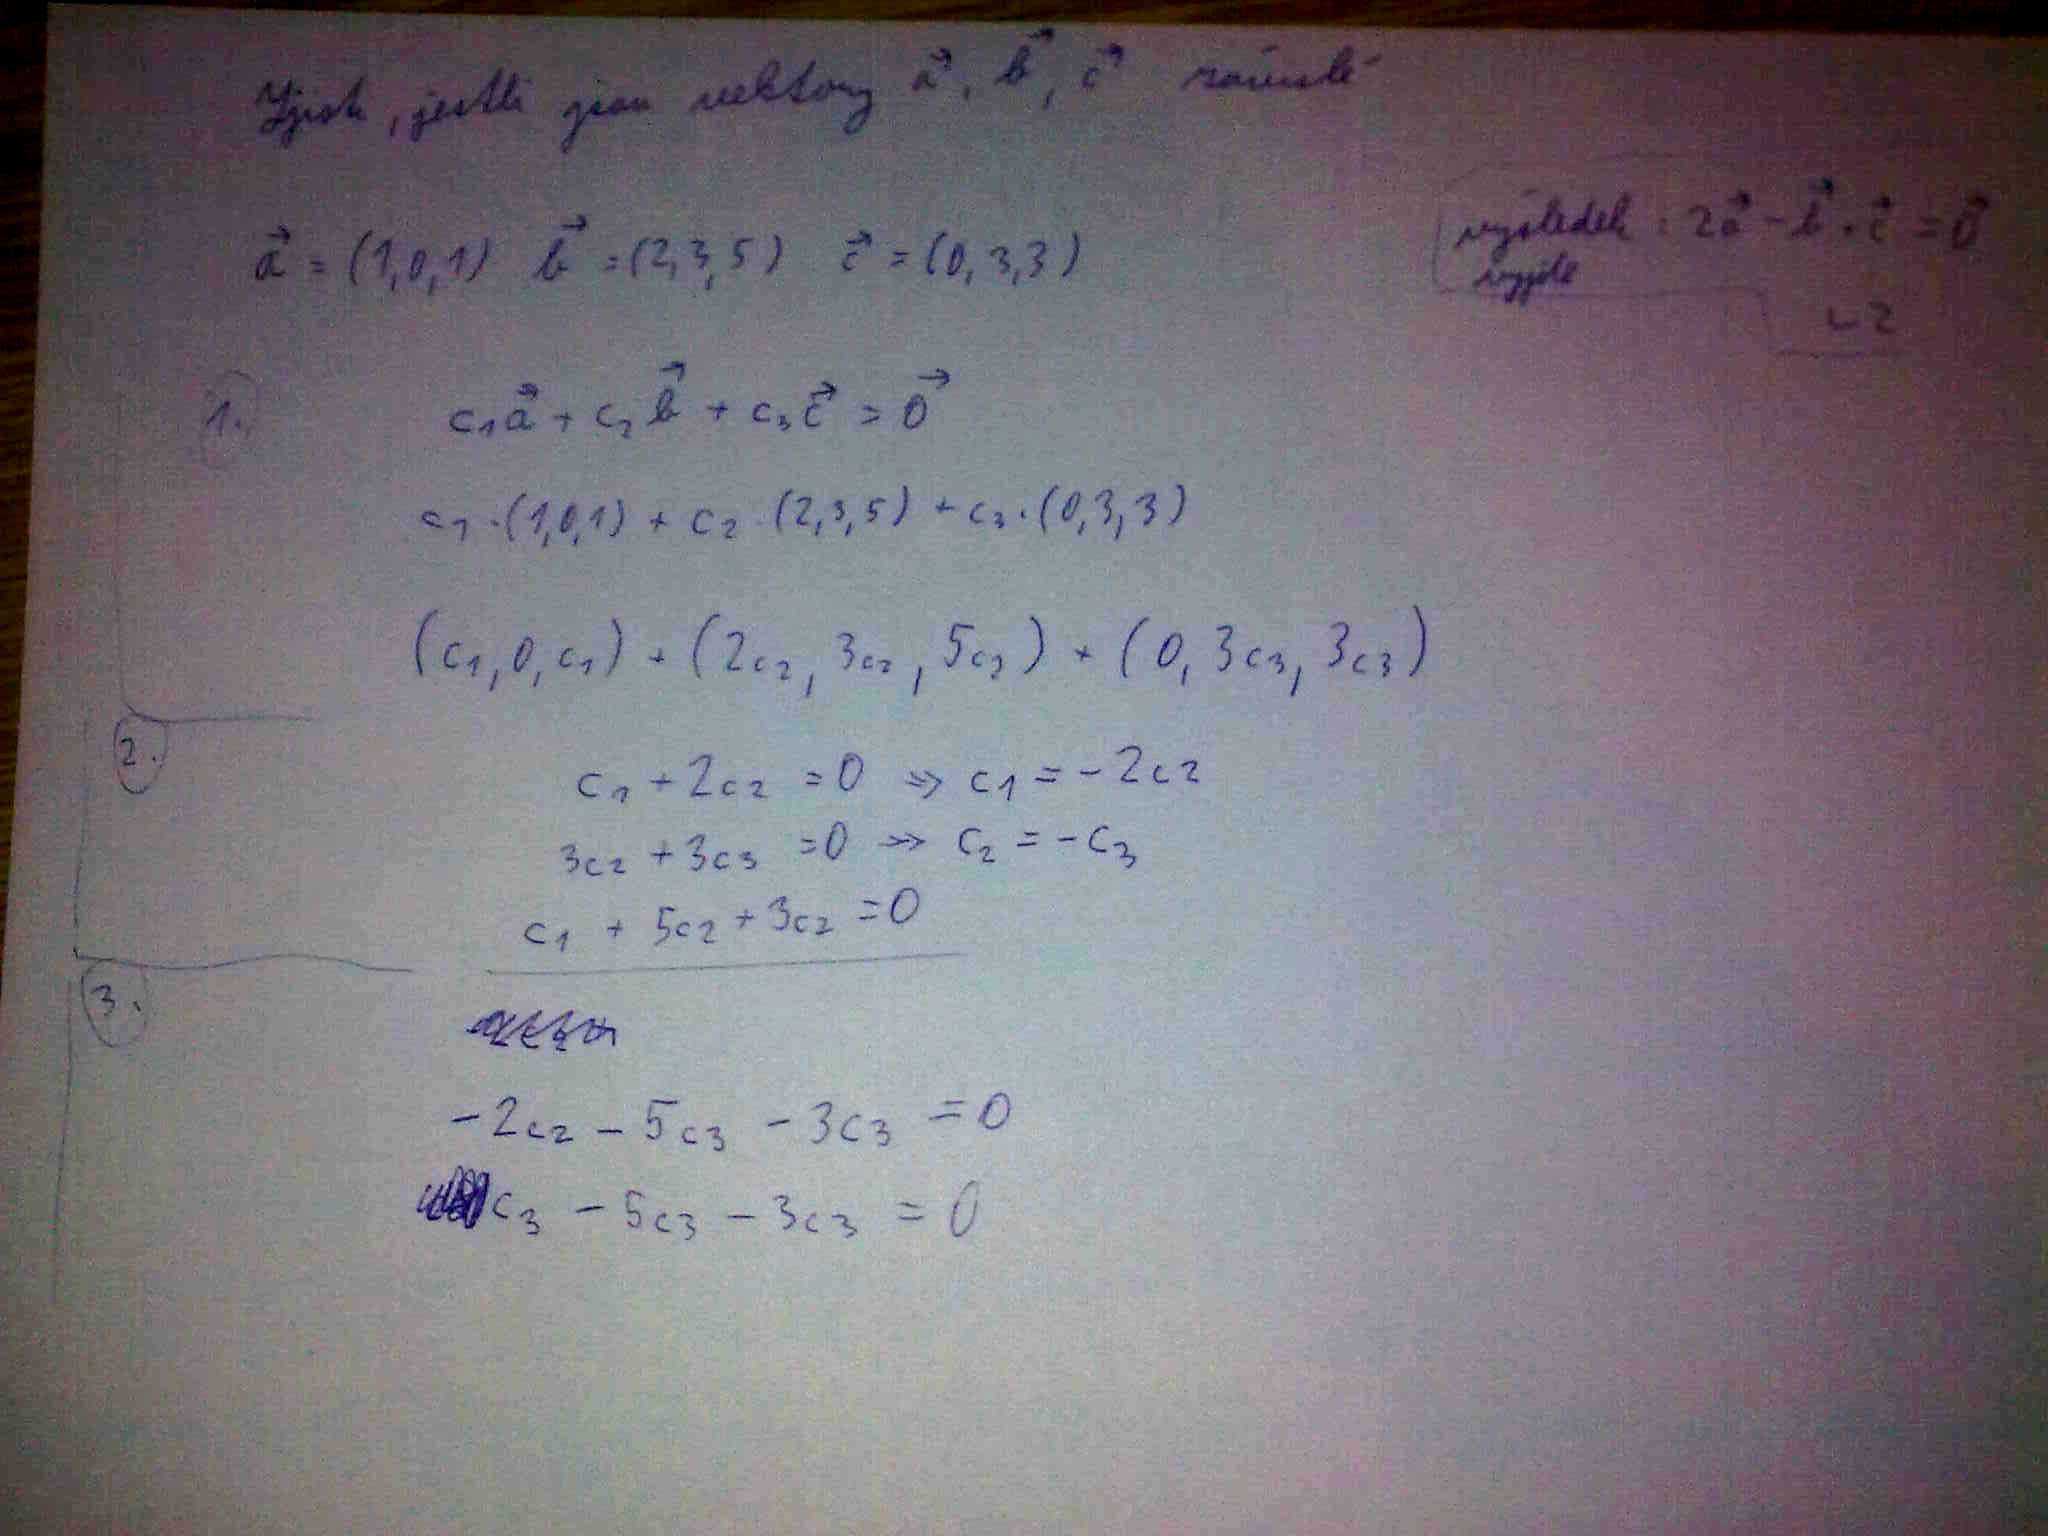 Zjisti, jestli jsou vektory a⃗, b⃗, c⃗ závislé
a⃗ = (1,0,1) b⃗ = (2,3,5) c⃗ = (0,3,3)
výsledek : 2a⃗ - b⃗ + c⃗ = 0⃗
vyjde
LZ
1.
c₁a⃗ + c₂b⃗ + c₃c⃗ = 0⃗
c₁·(1,0,1) + c₂·(2,3,5) + c₃·(0,3,3)
(c₁,0,c₁) + (2c₂, 3c₂, 5c₂) + (0, 3c₃, 3c₃)
2.
c₁ + 2c₂ = 0 => c₁ = -2c₂
3c₂ + 3c₃ = 0 => c₂ = -c₃
c₁ + 5c₂ + 3c₂ = 0
3.
-2c₂ - 5c₃ - 3c₃ = 0
c₃ - 5c₃ - 3c₃ = 0